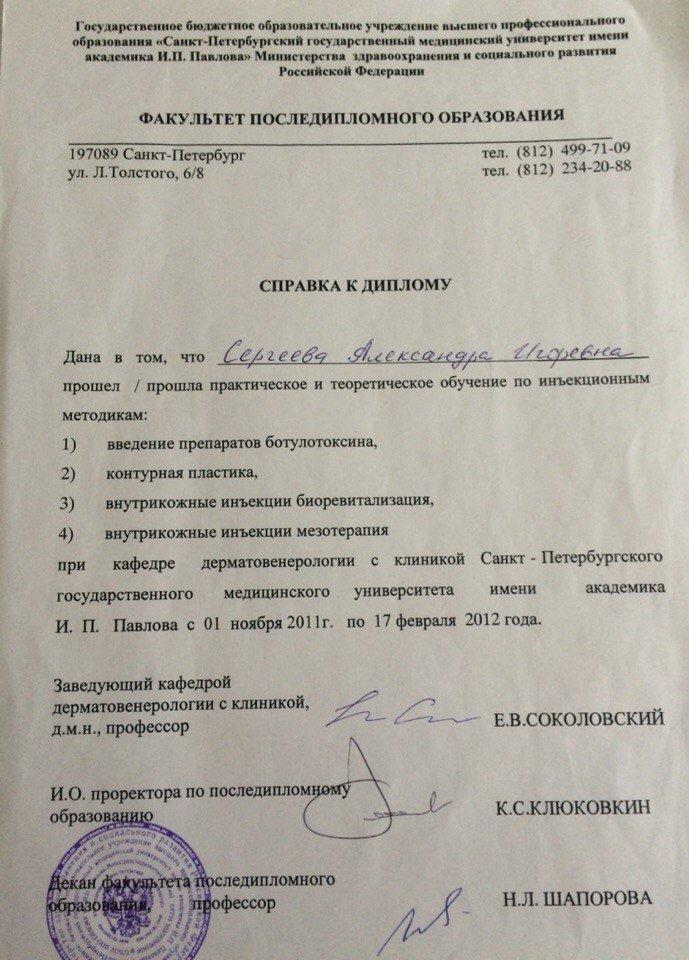 Государственное бюджетное образовательное учреждение высшего профессионального
образования «Санкт-Петербургский государственный медицинский университет имени
академика И.П. Павлова» Министерства здравоохранения и социального развития
Российской Федерации
ФАКУЛЬТЕТ ПОСЛЕДИПЛОМНОГО ОБРАЗОВАНИЯ
197089 Санкт-Петербург тел. (812) 499-71-09
ул. Л.Толстого, 6/8 тел. (812) 234-20-88
СПРАВКА К ДИПЛОМУ
Дана в том, что Сергеева Александра Игоревна
прошел / прошла практическое и теоретическое обучение по инъекционным
методикам:
1) введение препаратов ботулотоксина,
2) контурная пластика,
3) внутрикожные инъекции биоревитализация,
4) внутрикожные инъекции мезотерапия
при кафедре дерматовенерологии с клиникой Санкт - Петербургского
государственного медицинского университета имени академика
И. П. Павлова с 01 ноября 2011г. по 17 февраля 2012 года.
Заведующий кафедрой
дерматовенерологии с клиникой,
д.м.н., профессор Е.В.СОКОЛОВСКИЙ
И.О. проректора по последипломному
образованию К.С.КЛЮКОВКИН
Декан факультета последипломного
образования, профессор Н.Л. ШАПОРОВА